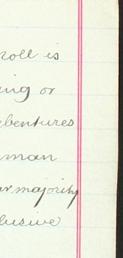 roll is
ing or
ebentures
man
ar majority
lusive